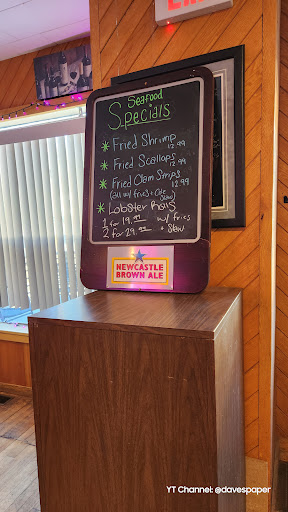 Seafood
Specials
* Fried Shrimp
12.99
* Fried Scallops
12.99
* Fried Clam Strips
12.99
(all w/ fries + Cole Slaw)
* Lobster Rolls
1 for 19.99 w/ fries
2 for 29.99 + Slaw
NEWCASTLE
BROWN ALE
YT Channel: @davespaper